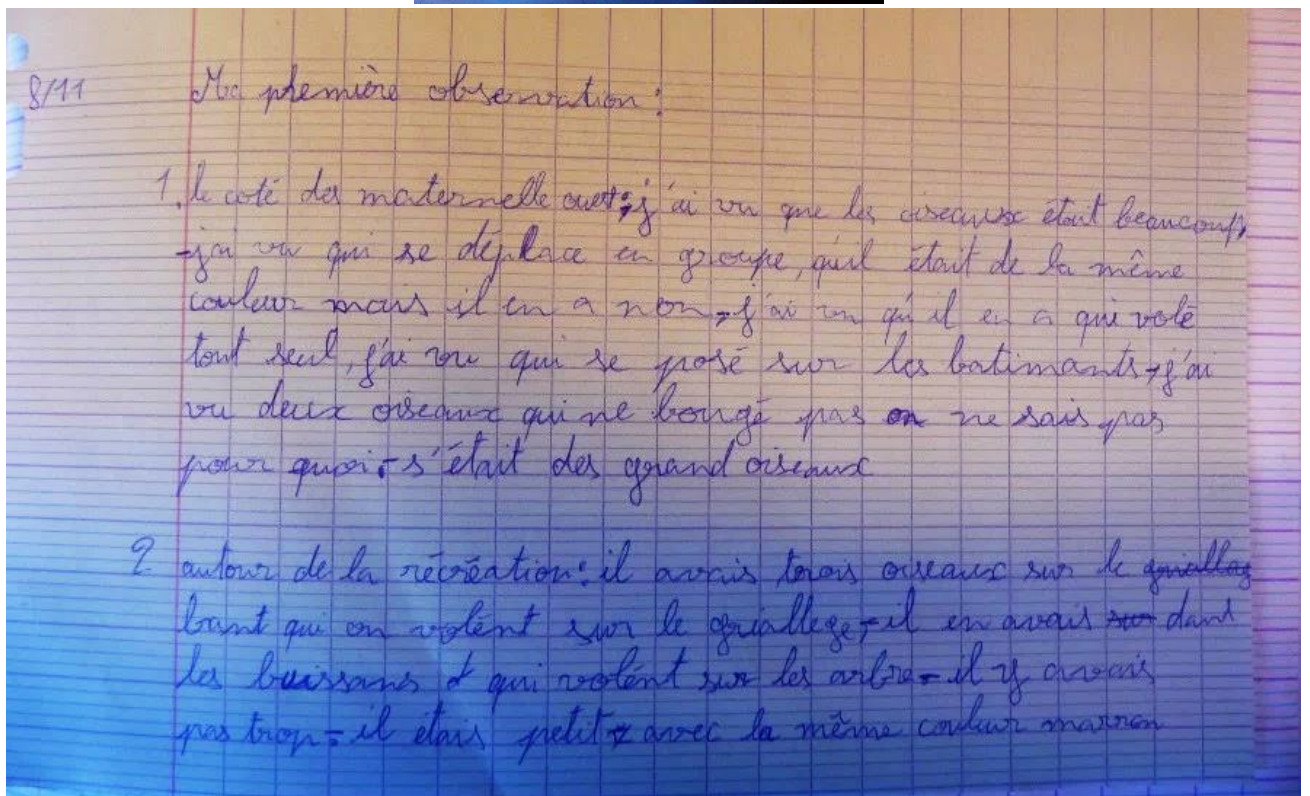 8/11 Ma première observation :
1. le coté des maternelle ouest : j'ai vu que les oiseaux était beaucoup,
-j'ai vu qui se déplace en groupe, quil était de la même
couleur mais il en a non - j'ai vu qu'il en a qui volé
tout seul, j'ai vu qui se posé sur les batimants - j'ai
vu deux oiseaux qui ne bougé pas on ne sais pas
pour quoi - s'était des grand oiseaux
2 autour de la récréation : il avais trois oiseaux sur le
bant qui on volént sur le griallege - il en avais dant
les buissans et qui volént sur les arbre - il y avais
pas trop - il étais petit avec la même couleur marron